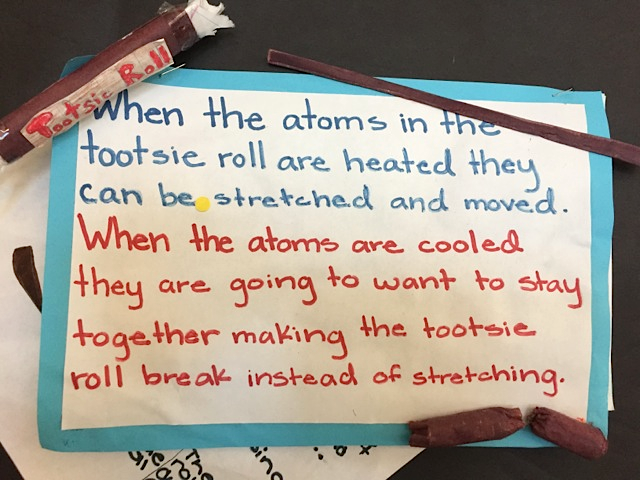 Tootsie Roll
When the atoms in the
tootsie roll are heated they
can be stretched and moved.
When the atoms are cooled
they are going to want to stay
together making the tootsie
roll break instead of stretching.